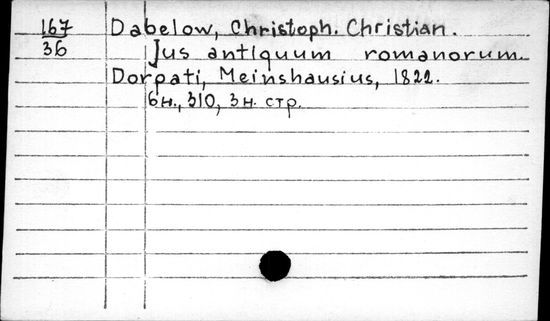 167 Dabelow, Christoph. Christian.
36 Jus antiquum romanorum.
Dorpati, Meinshausius, 1822.
6н., 310, 3н. стр.